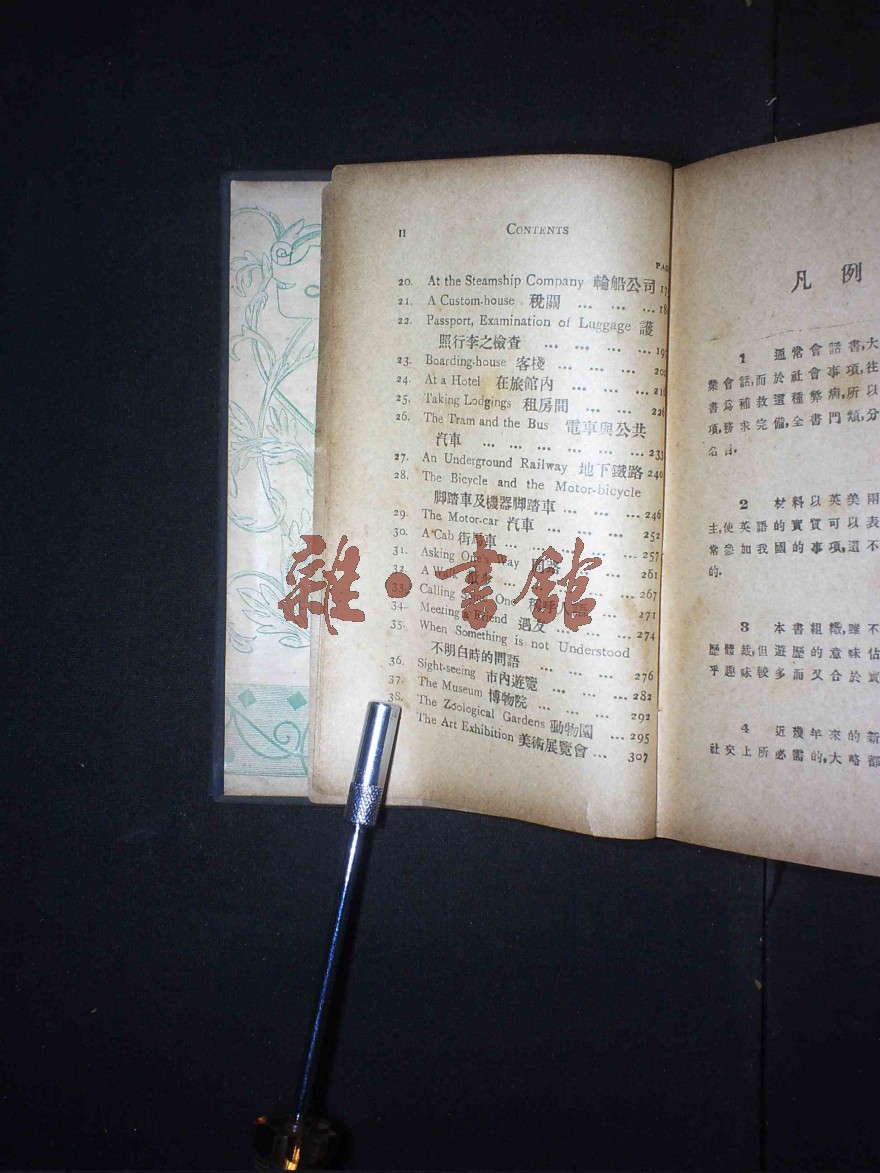 II CONTENTS
20. At the Steamship Company 輪船公司
21. A Custom-house 稅關 ... ... ...
22. Passport, Examination of Luggage 護
照行李之檢查 ... ... ... ...
23. Boarding-house 客棧 ... ... ...
24. At a Hotel 在旅館內 ... ...
25. Taking Lodgings 租房間 ... ...
26. The Tram and the Bus 電車與公共
汽車 ... ... ... ... ... ... 233
27. An Underground Railway 地下鐵路 240
28. The Bicycle and the Motor-bicycle
脚踏車及機器脚踏車 ... ... ... 246
29. The Motor-car 汽車 ... ... ... 252
30. A Cab 街馬車 ... ... ... ... 257
31. Asking One's Way 問路 ... ... 261
32. A ... ... ... 267
33. Calling One ... 271
34. Meeting a Friend 遇友 ... ... ... 274
35. When Something is not Understood
不明白時的問語 ... ... 276
36. Sight-seeing 市內遊覽 ... ... ... 282
37. The Museum 博物院 ... ... ... 292
38. The Zoological Gardens 動物園 ... 295
The Art Exhibition 美術展覽會 ... 307
凡例
1 通常會話書,大
業會話,而於社會事項,往
書爲補救這種弊病,所以
項,務求完備,全書門類,分
名目.
2 材料以英美兩
主,使英語的實質可以表
常參加我國的事項,這不
的.
3 本書組織,雖不
歷體裁,但遊歷的意味佔
乎趣味較多而又合於實
4 近幾年來的新
社交上所必需的,大略都
雜·書館